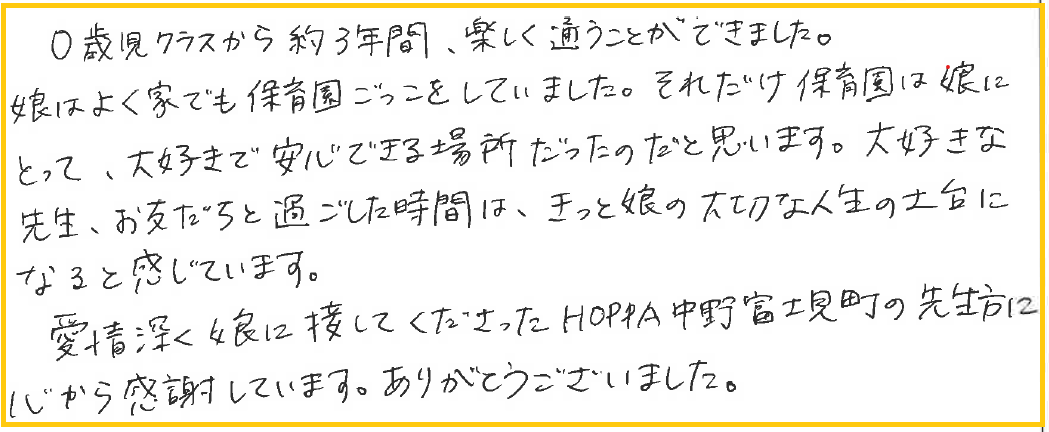 0歳児クラスから約3年間、楽しく通うことができました。
娘はよく家でも保育園ごっこをしていました。それだけ保育園は娘に
とって、大好きで安心できる場所だったのだと思います。大好きな
先生、お友だちと過ごした時間は、きっと娘の大切な人生の土台に
なると感じています。
愛情深く娘に接してくださったHOPPA中野富士見町の先生方に
心から感謝しています。ありがとうございました。